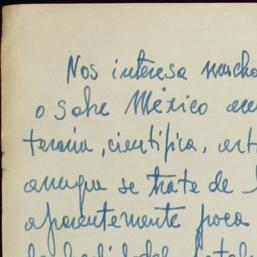 Nos interesa mucho
o sobre México en
teraria, científica, art
aunque se trate de
aparentemente poca